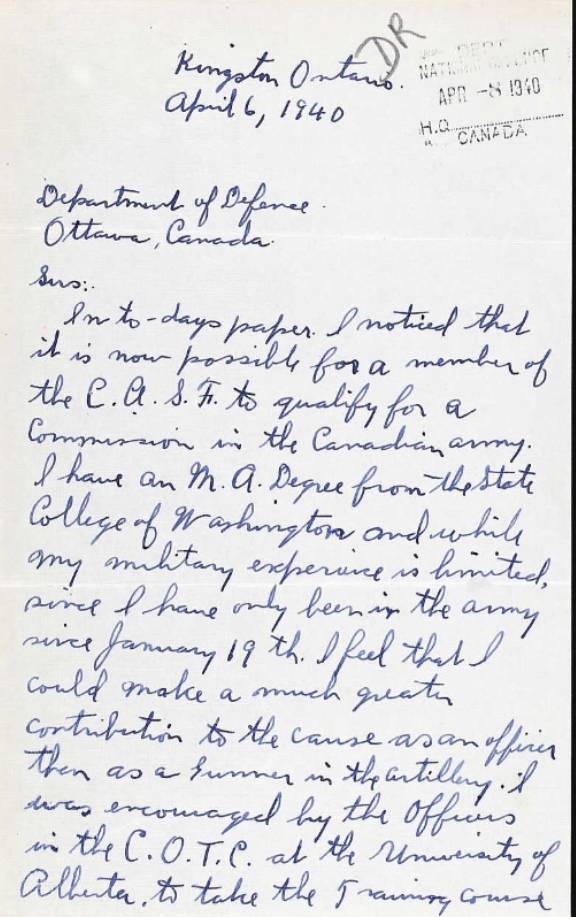 DR
DEPT
NATIONAL DEFENCE
APR -8 1940
H.Q.
CANADA
Kingston Ontario.
April 6, 1940
Department of Defence.
Ottawa, Canada.
Sirs:.
In to-days paper. I noticed that
it is now possible for a member of
the C.A.S.F. to qualify for a
Commission in the Canadian army.
I have an M.A. Degree from the State
College of Washington and while
my military experience is limited,
since I have only been in the army
since January 19 th. I feel that I
could make a much greater
contribution to the cause as an officer
than as a Gunner in the artillery. I
was encouraged by the Officers
in the C.O.T.C. at the University of
Alberta, to take the Training course